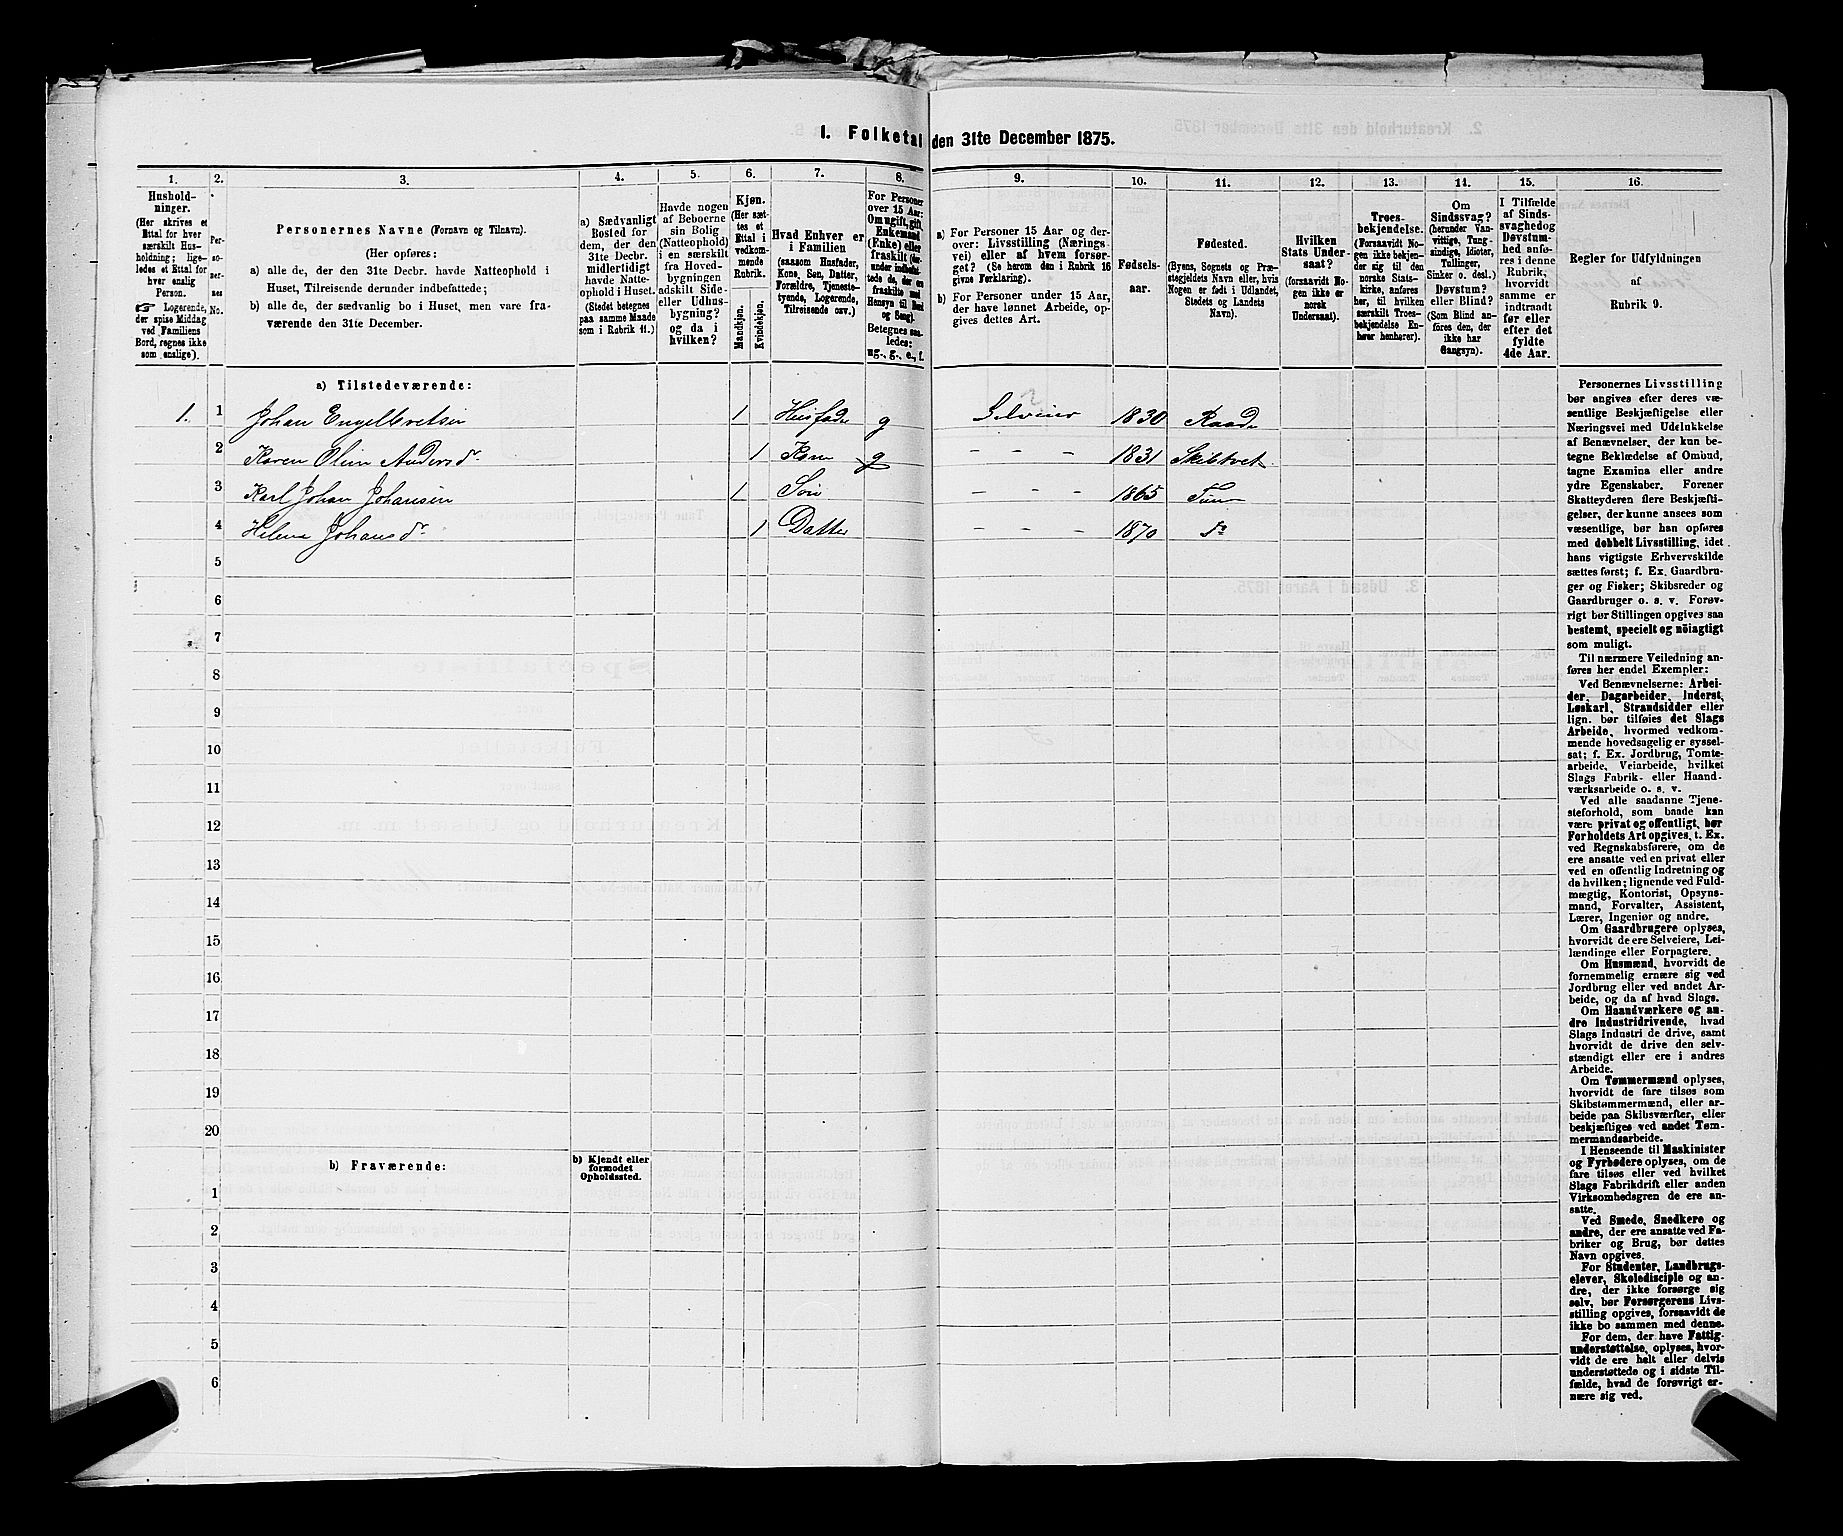 I. Folketal den 31te December 1875.
1. 2. 3. 4. 5. 6. 7. 8. 9. 10. 11. 12. 13. 14. 15. 16.
Hushold-
ninger.
(Her skrives et
Ettal for hver
særskilt Hus-
holdning; lige-
ledes et Ettal for
hver enslig
Person.
☞ Logerende,
der spise Middag
ved Familiens
Bord, regnes ikke
som enslige).
Per-
so-
ner-
nes
No.
Personernes Navne (Fornavn og Tilnavn).
(Her opføres:
a) alle de, der den 31te Decbr. havde Natteophold i
Huset, Tilreisende derunder indbefattede;
b) alle de, der sædvanlig bo i Huset, men vare fra-
værende den 31te December.
a) Sædvanligt
Bosted for
dem, der den
31te Decbr.
midlertidigt
havde Natte-
ophold i Huset.
(Stedet betegnes
paa samme Maade
som i Rubrik 11.)
Havde nogen
af Beboerne
sin Bolig
(Natteophold)
i en særskilt
fra Hoved-
bygningen
adskilt Side-
eller Udhus-
bygning?
og da i
hvilken?
Kjøn.
(Her sæt-
tes et
Ettal i
vedkom-
mende
Rubrik.
Mandkjøn.
Kvindekjøn.
Hvad Enhver er
i Familien
(saasom Husfader,
Kone, Søn, Datter,
Forældre, Tjeneste-
tyende, Logerende,
Tilreisende osv.)
For Personer
over 15 Aar:
Om ugift, gift,
Enkemand
(Enke) eller
fraskilt (der-
under indbefat-
tede de, der ere
fraskilte med
Hensyn til Bord
og Seng).
Betegnes saa-
ledes:
ug., g., e., f.
a) For Personer 15 Aar og der-
over: Livsstilling (Nærings-
vei) eller af hvem forsør-
get? (Se herom den i Rubrik 16
givne Forklaring).
b) For Personer under 15 Aar,
der have lønnet Arbeide, op-
gives dettes Art.
Fødsels-
aar.
Fødested.
(Byens, Sognets og Præ-
stegjeldets Navn eller, hvis
Nogen er født i Udlandet,
Stedets og Landets
Navn).
Hvilken
Stats Under-
saat?
(forsaavidt No-
gen ikke er
norsk
Undersaat).
Troes-
bekjendelse.
(Forsaavidt No-
gen ikke bekjen-
der sig til den
norske Stats-
kirke, anføres
her, til hvilken
særskilt Troes-
bekjendelse En-
hver henhører).
Om
Sindssvag?
(herunder Van-
vittige, Tung-
sindige, Idioter,
Tullinger,
Sinker o. desl.)
Døvstum?
eller Blind?
(Som Blind an-
føres den, der
ikke har
Gangsyn).
I Tilfælde
af Sinds-
svaghed og
Døvstum-
hed anfø-
res i denne
Rubrik,
hvorvidt
samme er
indtraadt
før eller
efter det
fyldte
4de Aar.
Regler for Udfyldningen
af
Rubrik 9.
a) Tilstedeværende:
1. 1 Johan Engelbretsen 1 Husfader g Selveier 1830 Raade
2 Karen Olin Andersd. 1 Kone g - - - 1831 Skibtvet
3 Karl Johan Johansen 1 Søn - - - 1865 Tune
4 Helene Johansd. 1 Datter - - - 1870 Do
5
6
7
8
9
10
11
12
13
14
15
16
17
18
19
20
b) Fraværende:
b) Kjendt eller
formodet
Opholdssted.
1
2
3
4
5
6
Personernes Livsstilling
bør angives efter deres væ-
sentlige Beskjæftigelse eller
Næringsvei med Udelukkelse
af Benævnelser, der kun be-
tegne Beklædelse af Ombud,
tagne Examina eller andre
ydre Egenskaber. Forener
Skatteyderen flere Beskjæfti-
gelser, der kunne ansees som
væsentlige, bør han opføres
med dobbelt Livsstilling, idet
hans vigtigste Erhvervskilde
sættes først; f. Ex. Gaardbru-
ger og Fisker; Skibsreder og
Gaardbruger o. s. v. Forøv-
rigt bør Stillingen opgives saa
bestemt, specielt og nöiagtigt
som muligt.
Til nærmere Veiledning an-
føres her endel Exempler:
Ved Benævnelserne: Arbei-
der, Dagarbeider, Inderst,
Løskarl, Strandsidder eller
lign. bør tilføies det Slags
Arbeide, hvormed vedkom-
mende hovedsagelig er syssel-
sat; f. Ex. Jordbrug, Tomte-
arbeide, Veiarbeide, hvilket
Slags Fabrik- eller Haand-
værksarbeide o. s. v.
Ved alle saadanne Tjene-
steforhold, som baade kan
være privat og offentligt, bør
Forholdets Art opgives, t. Ex.
ved Regnskabsførere, om de
ere ansatte ved en privat eller
ved en offentlig Indretning og
da hvilken; lignende ved Fuld-
mægtig, Kontorist, Opsyns-
mand, Forvalter, Assistent,
Lærer, Ingeniør og andre.
Om Gaardbrugere oplyses,
hvorvidt de ere Selveiere, Lei-
lændinge eller Forpagtere.
Om Husmænd, hvorvidt de
fornemmelig ernære sig ved
Jordbrug eller ved andet Ar-
beide, og da af hvad Slags.
Om Haandværkere og an-
dre Industridrivende, hvad
Slags Industri de drive, samt
hvorvidt de drive den selv-
stændigt eller ere i andres
Arbeide.
Om Tømmermænd oplyses,
hvorvidt de fare tilsøs som
Skibstømmermænd, eller ar-
beide paa Skibsværfter, eller
beskjæftiges ved andet Tøm-
mermandsarbeide.
I Henseende til Maskinister
og Fyrbødere oplyses, om de
fare tilsøs eller ved hvilket
Slags Fabrikdrift eller anden
Virksomhedsgren de ere an-
satte.
Ved Smede, Snedkere og
andre, der ere ansatte ved Fa-
briker og Brug, bør dettes
Navn opgives.
For Studenter, Landbrugs-
elever, Skoledisciple og an-
dre, der ikke forsørge sig
selv, bør Forsørgerens Livs-
stilling opgives, forsaavidt de
ikke bo sammen med denne.
For dem, der have Fattig-
understøttelse, oplyses, hvor-
vidt de ere helt eller delvis
understøttede og i sidste Til-
fælde, hvad de forøvrigt er-
nære sig ved.